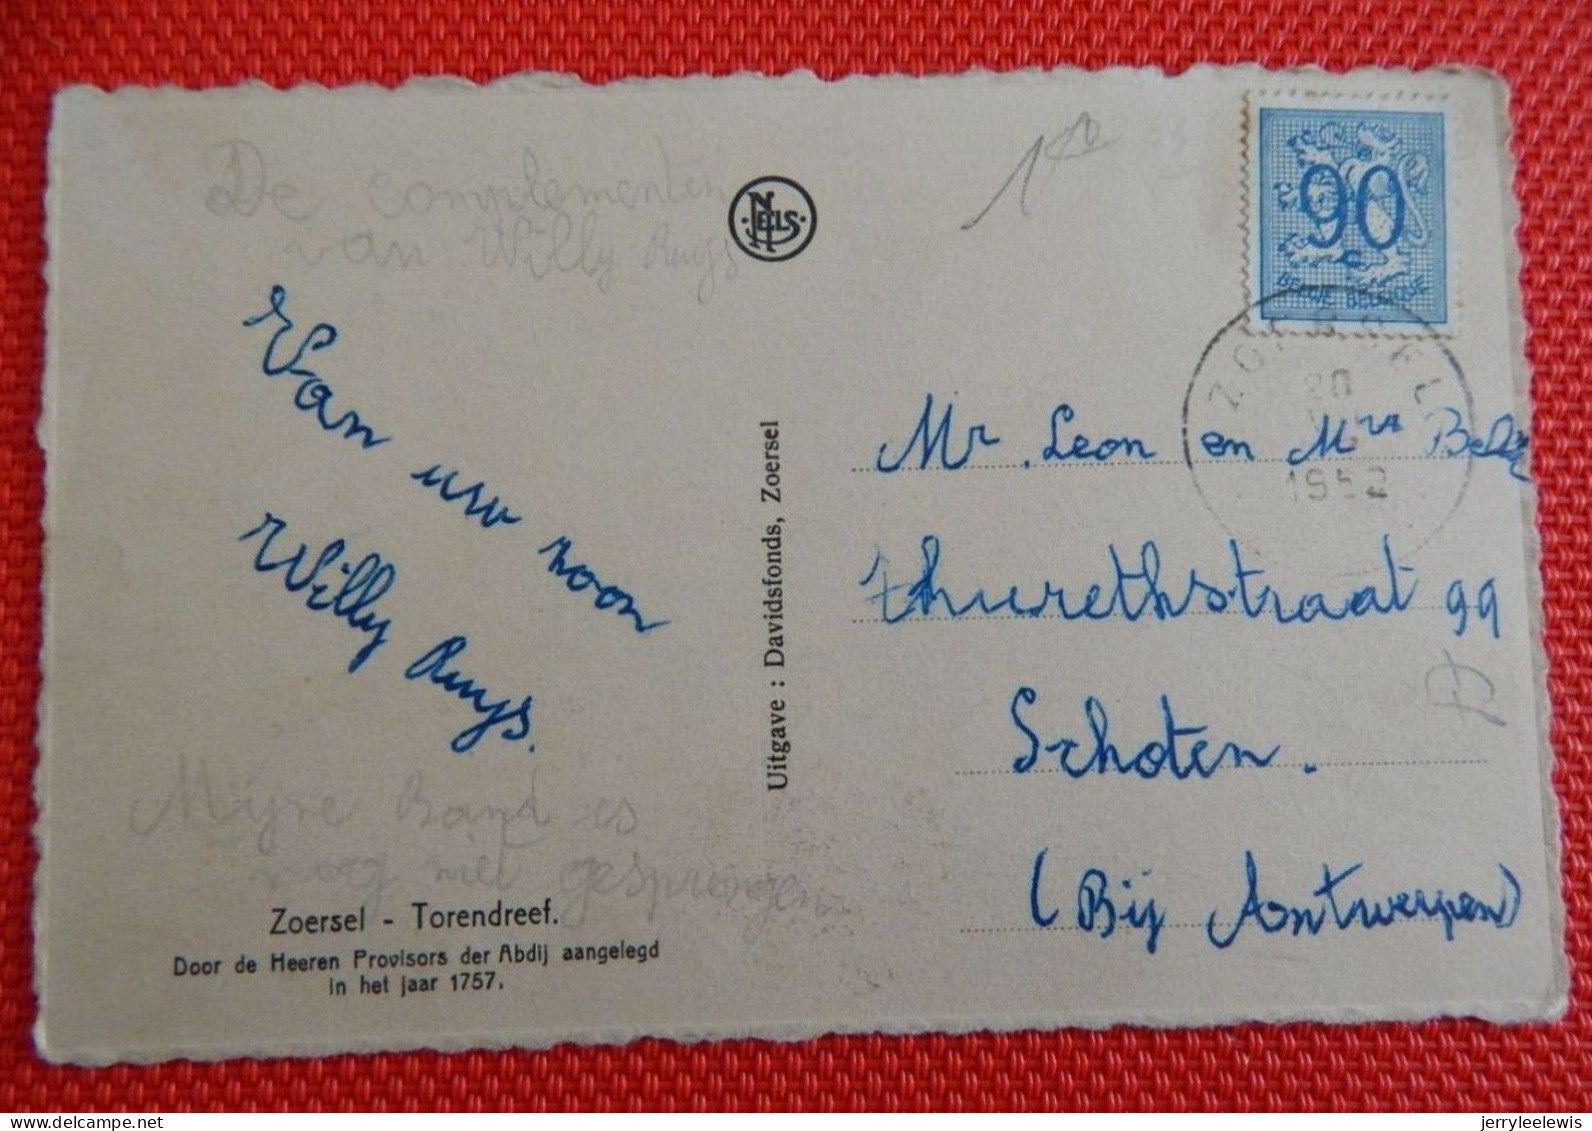 De complementen
van Willy Ruys
NELS
1
90
c
BELGIE BELGIQUE
ZOERSEL
1952
Van uw zoon
Willy Ruys.
Mr. Leon en Mvr
thurethstraat 99
Schoten.
(Bij Antwerpen)
Uitgave : Davidsfonds, Zoersel
Mijne Band is
nog niet gesprongen
Zoersel - Torendreef.
Door de Heeren Provisors der Abdij aangelegd
in het jaar 1757.
jerryleelewis